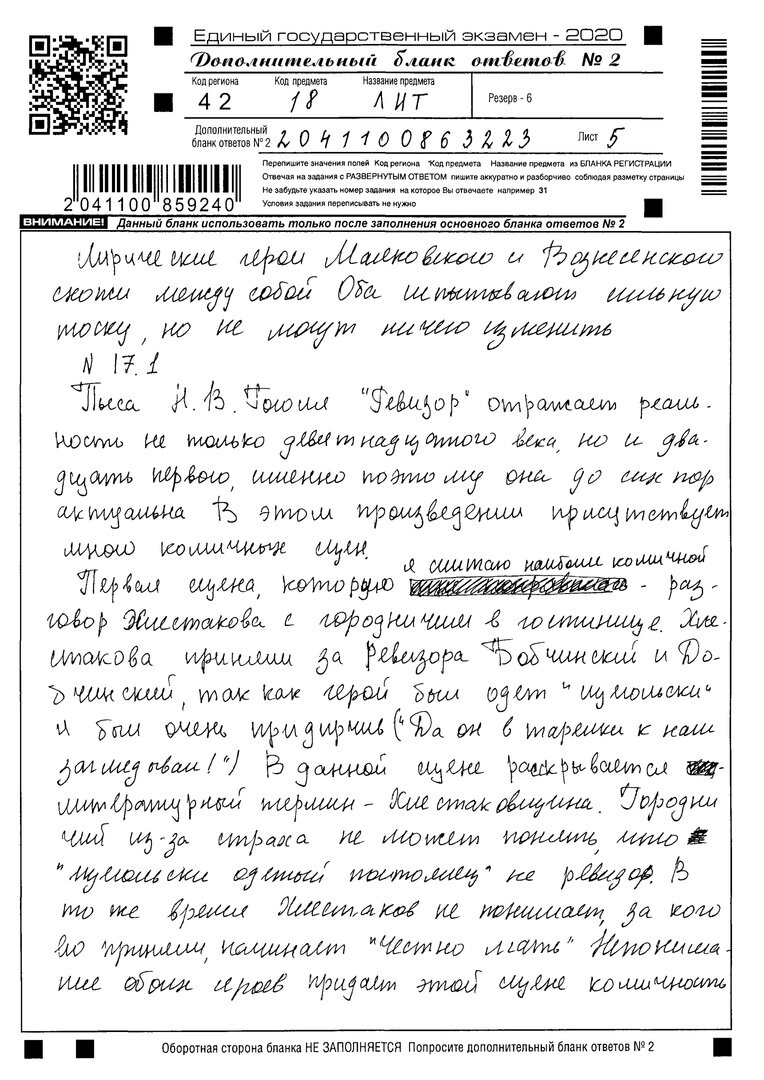 Единый государственный экзамен - 2020
Дополнительный бланк ответов № 2
Код региона Код предмета Название предмета
42 18 ЛИТ Резерв - 6
Дополнительный бланк ответов № 2 2041100863223 Лист 5
Перепишите значения полей Код региона Код предмета Название предмета из БЛАНКА РЕГИСТРАЦИИ
Отвечая на задания с РАЗВЕРНУТЫМ ОТВЕТОМ пишите аккуратно и разборчиво соблюдая разметку страницы
Не забудьте указать номер задания на которое Вы отвечаете например 31
Условия задания переписывать не нужно
2041100859240
ВНИМАНИЕ! Данный бланк использовать только после заполнения основного бланка ответов № 2
Лирические герои Маяковского и Вознесенского
схожи между собой Оба испытывают сильную
тоску, но не могут ничего изменить
N 17.1
Пьеса Н.В.Гоголя "Ревизор" отражает реаль-
ность не только девятнадцатого века, но и два-
дцать первого, именно поэтому она до сих пор
актуальна В этом произведении присутствует
много комичных сцен.
Первая сцена, которую я считаю наиболее комичной - раз-
говор Хлестакова с городничим в гостинице. Хле-
стакова приняли за Ревизора Бобчинский и До-
бчинский, так как герой был одет "щегольски"
и был очень придирчив ("Да он в тарелки к нам
заглядывал!") В данной сцене раскрывается
литературный термин - Хлестаковщина. Городни
чий из-за страха не может понять, что
"щегольски одетый постоялец" не ревизор. В
то же время Хлестаков не понимает, за кого
его приняли, начинает "честно лгать" Непонима-
ние обоих героев придает этой сцене комичность
Оборотная сторона бланка НЕ ЗАПОЛНЯЕТСЯ Попросите дополнительный бланк ответов № 2